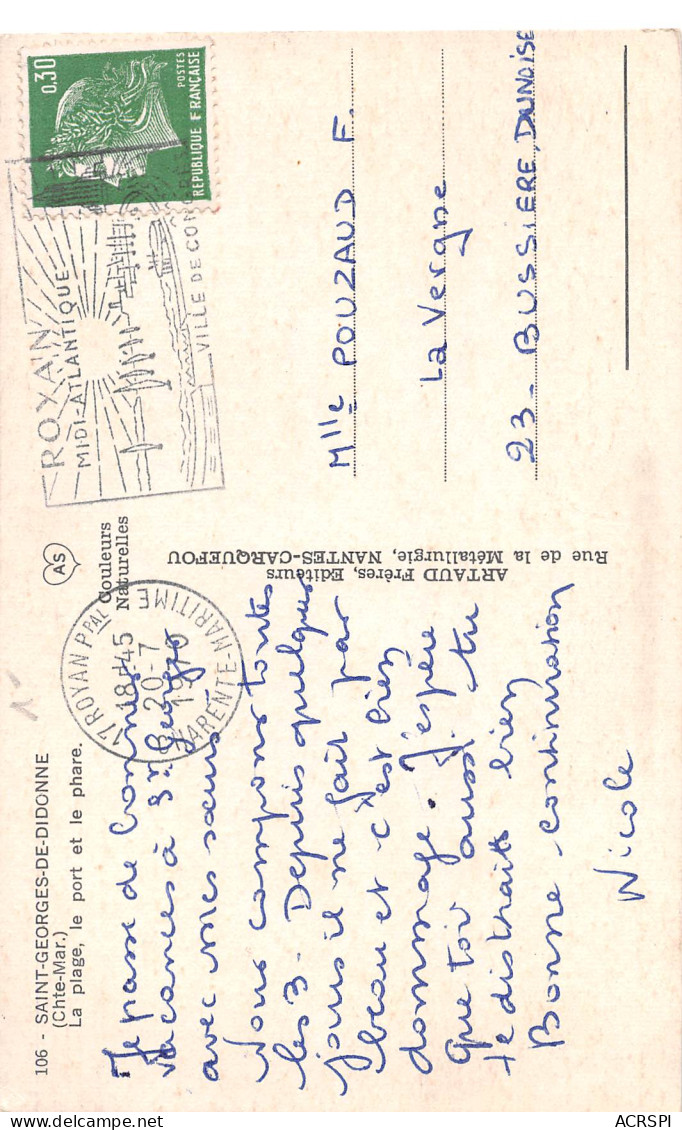 106 - SAINT-GEORGES-DE-DIDONNE
(Chte-Mar.)
La plage, le port et le phare.
AS
Couleurs
Naturelles
Je passe de bonnes
vacances à St Georges
avec mes sœurs
Nous campons toutes
les 3. Depuis quelques
jours il ne fait pas
beau et c'est bien
dommage. J'espère
que toi aussi tu
te distraits bien
Bonne continuation
Nicole
ARTAUD Frères, Editeurs
Rue de la Métallurgie, NANTES-CARQUEFOU
17 ROYAN Ppal
18H45
20-7
1970
CHARENTE-MARITIME
ROYAN
MIDI-ATLANTIQUE
VILLE DE CONGRES
0,30
POSTES
REPUBLIQUE FRANÇAISE
Mlle POUZAUD F.
La Vergne
23 - BUSSIERE, DUNOISE
ACRSPI